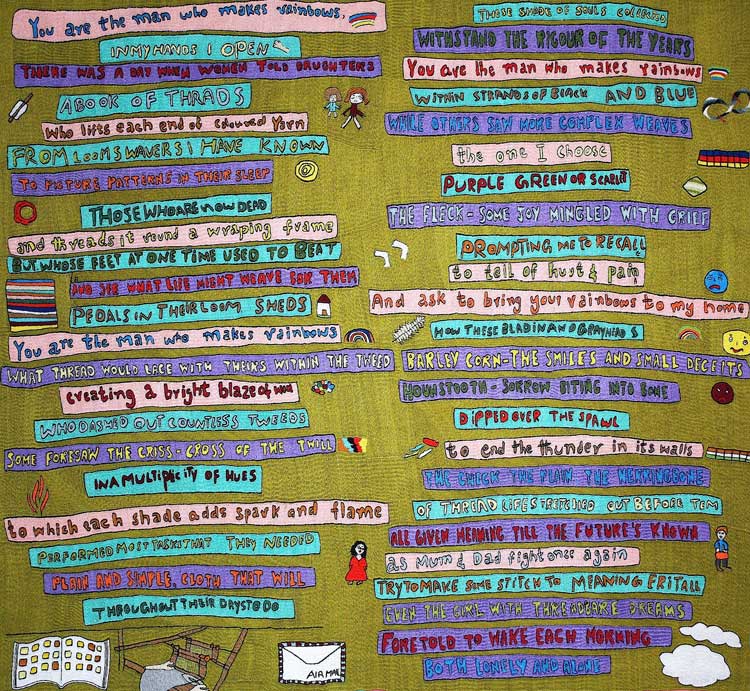 You are the man who makes rainbows.
IN MY HANDS I OPEN
THERE WAS A DAY WHEN WOMEN TOLD DAUGHTERS
A BOOK OF THRADS
who lifts each end of coloured yarn
FROM LOOMS WAVERS I HAVE KNOWN
TO FUTURE PATTERNS IN THEIR SLEEP
THOSE WHO ARE NOW DEAD
and threads it round a wraping frame
BUT WHOSE FEET AT ONE TIME USED TO BEAT
AND SEE WHAT LIFE MIGHT WEAVE FOR THEM
PEDALS IN THEIR LOOM SHEDS
You are the man who makes rainbows
WHAT THREAD WOULD LACE WITH THEIRS WITHIN THE TWEED
creating a bright blaze of
WHO DASHED OUT COUNTLESS TWEEDS
SOME FORESAW THE CRISS-CROSS OF THE TWILL
IN A MULTIPLICITY OF HUES
to which each shade adds spark and flame
PERFORMED MOST TASKS THAT THEY NEEDED
PLAIN AND SIMPLE, CLOTH THAT WILL
THROUGHOUT THEIR DAYS TO DO
AIR MAIL
THOSE SHADE OF SOULS COLLECTED
WITHSTAND THE RIGOUR OF THE YEARS
You are the man who makes rainbows
WITHIN STRANDS OF BLACK AND BLUE
WHILE OTHERS SAW MORE COMPLEX WEAVES
the one I choose
PURPLE GREEN OR SCARLET
THE FLECK - SOME JOY MINGLED WITH GRIEF
PROMPTING ME TO RECALL
to tell of hurt & pain
And ask to bring your rainbows to my home
HOW THESE BLAD IN AND GRAYHEADS
BARLEY CORN - THE SMILES AND SMALL DECEITS
HOUNSTOOTH - SORROW BITING INTO BONE
DIPPED OVER THE SPAWL
to end the thunder in its walls
THE CHECK THE PLAIN THE HERRINGBONE
OF THREAD LIFE STRETCHED OUT BEFORE TEM
ALL GIVEN MEANING TILL THE FUTURE'S KNOWN
as Mum & Dad fight once again
TRY TO MAKE SOME STITCH TO MEANING FRIT ALL
EVEN THE GIRL WITH THREADBARE DREAMS
FORETOLD TO WAKE EACH MORNING
BOTH LONELY AND ALONE